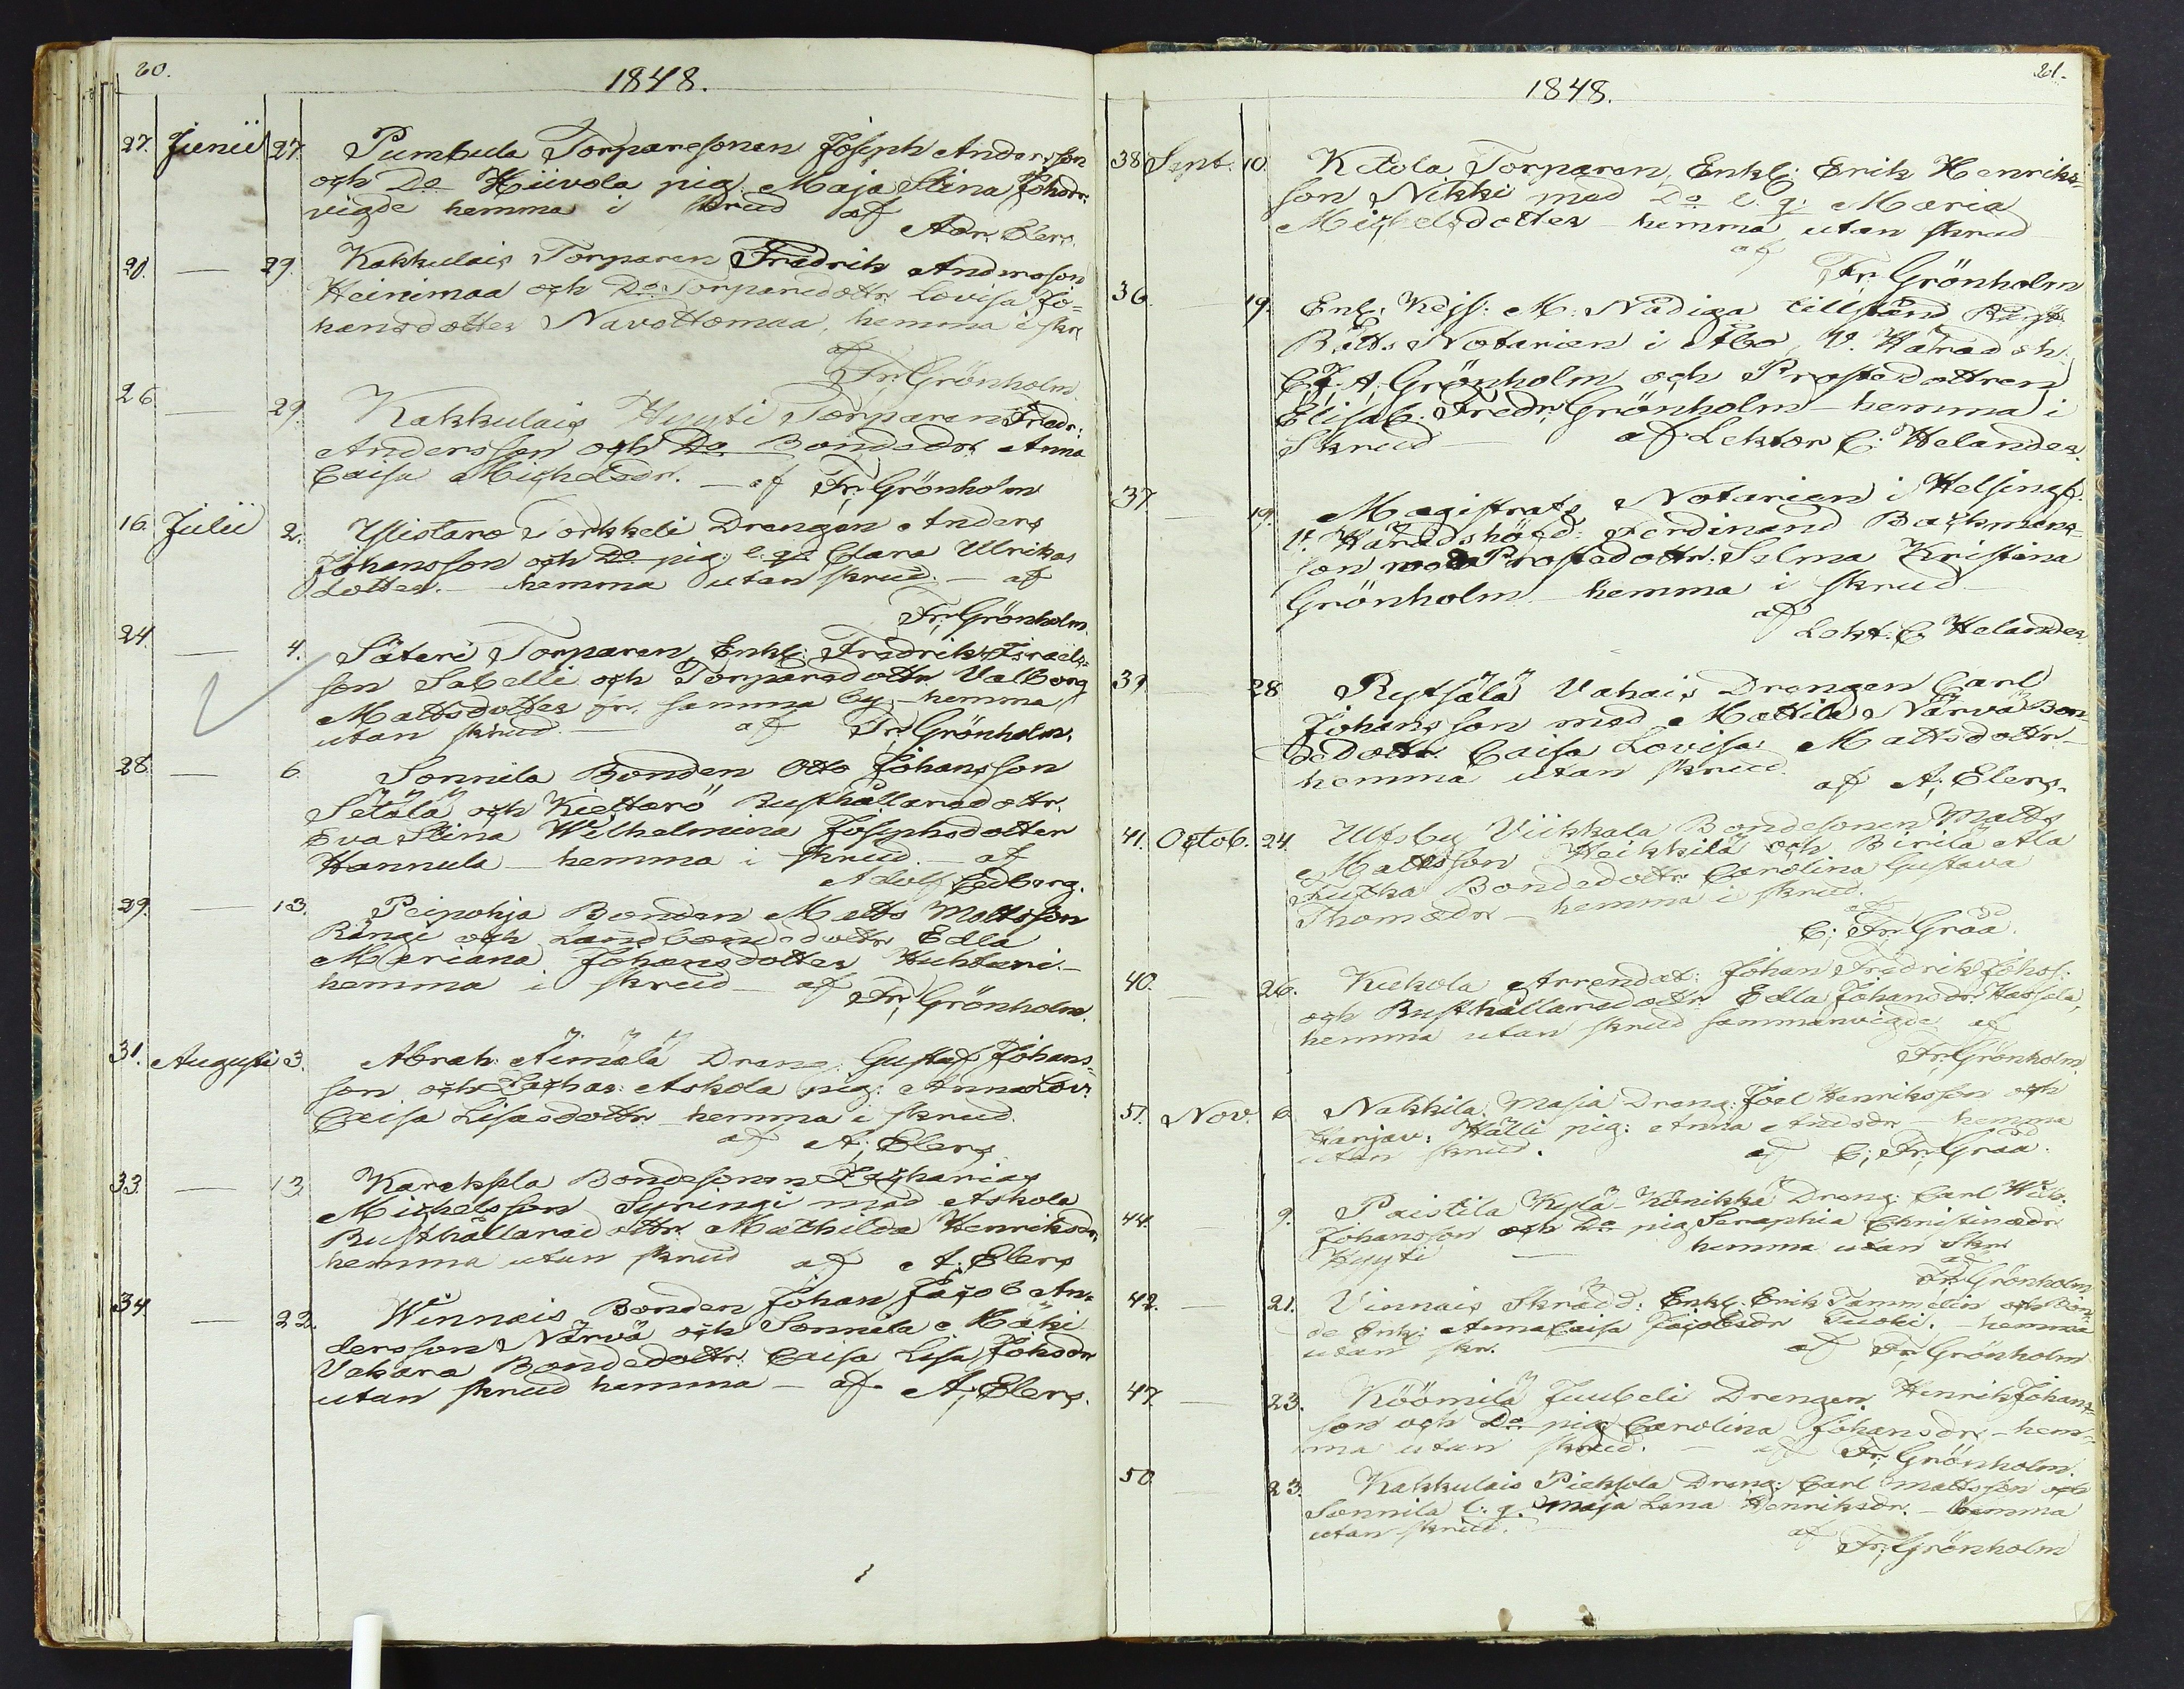 20.
1848.
27. Junii 27. Pumbula Torparesonen Joseph Andersson
och Do Hiivola pig. Maja Stina Johsdr.
vigde hemma i skrud af
Adr. Elers.
20. — 29. Kakkulais Torparen Fredrik Andersson
Heinimaa och Do Torparedottr. Lovisa Jo-
hansdotter Navottomaa, hemma i skr.
af
Fr. Grönholm.
26 — 29. Kakkulais Hyyti Torparen Fredr.
Andersson och Do Bondedr. Anna
Caisa Michelsdr. — af Fr. Grönholm
16. Julii 2. Ylistaro Torkkeli Drengen Anders
Johansson och Do pig. l. q. Clara Ulrikas
dotter. — hemma utan skrud. — af
Fr. Grönholm.
24. — 4. Säteri Torparen Enkl: Fredrik Israels-
son Sabelli och Torparedottr. Valborg
Mattsdotter fr. samma by — hemma
utan skrud. — af Fr. Grönholm.
28 — 6. Sonnila Bonden Otto Johansson
Sétälä och Kieltarö Rusthållaredottr.
Eva Stina Wilhelmina Josephsdotter
Hannula — hemma i skrud. — af
Adolf Edberg.
29. — 13. Peipohja Bonden Matts Mattsson
Rängi och Landbondedottr. Edla
Mariana Johansdotter Huhtari. —
hemma i skrud — af
Fr. Grönholm.
31. Augusti 3. Abrah. Äimälä Dreng. Gustaf Johans-
son och Zachar. Askola pig: Anna Lov.
Caisa Lisasdottr. hemma i skrud.
af A. Elers
33. — 13. Kareksela Bondesonen Zacharias
Michelsson Syringi med Askola
Rusthållaredottr. Mathilda Henriksdr.
hemma utan skrud af A. Elers
34. — 22. Winnais Bonden Johan Jacob An-
dersson Närvä och Sonnila Mäki
Vakara Bondedottr. Caisa Lisa Johsdr
utan skrud hemma — af A. Elers.
21.
1848.
38 Sept. 10. Kitola Torparen, Enkl: Erik Henriks-
son Nikki med Do l. q. Maria
Michelsdotter — hemma utan skrud —
af
Fr. Grönholm
36. — 19. Enl. Kejs: M: Nådiga tillstånd
Rätts Notarien i Åbo, V. Häradsh.
C. J. A. Grönholm och Prostedottren
Elisab. Fredr. Grönholm — hemma i
Skrud — af Lektor C. Helander.
37 — 19. Magistrats Notarien i Helsingf.
V. Häradshöfd: Ferdinand Backmans-
son med Prostedottr. Selma Kristina
Grönholm — hemma i skrud —
af
Lekt. C. Helander
39 — 28 Rytsälä Vahais Drengen Carl
Johansson med Mattila Närvä Bon-
dedottr. Caisa Lovisa Mattsdottr. —
hemma utan skrud.
af A. Elers.
41. Octob. 24. Ulfsby Viikkala Bondesonen Matts
Mattsson Heikkilä och Birilä Ala
Bondedottr Carolina Gustava
Thomasdr — hemma i skrud.
af
C. Fr. Gråå.
40. — 26. Kukola Arrendat: Johan Fredrik Johss.
och Rusthållaredottr. Edla Johansdr. Hassala,
hemma utan skrud sammanvigde af
Fr. Grönholm
51. Nov. 6. Nakkila Masia Dreng: Joel Henriksson och
Harjav: Hälli pig: Anna Andsdr — hemma
utan skrud. af C. Fr. Gråå.
44. — 9. Paistila Kylä-Könikkä Dreng: Carl Wilh.
Johansson och Do pig Seraphia Christinasdr
Hyyti — hemma utan skr.
af
Fr. Grönholm
42. — 21. Vinnais Skrädd: Enkl. Erik Tammelin och Bon-
de Enk: Anna Caisa Jacobsdr Tuoki. — hemma
utan skr. — af Fr. Grönholm
47. — 23. Köömilä Juubeli Drengen Henrik Johans-
son och Do pig Carolina Johansdr. — hem-
ma utan skrud. — af Fr. Grönholm.
50 — 23. Kakkulais Pieksola Dreng: Carl Mattsson och
Sonnila l. q. Maja Lena Henriksdr. — hemma
utan skrud. — af
Fr. Grönholm